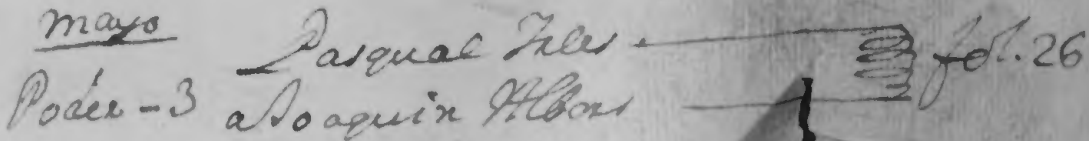 mayo
Pasqual Ysles fol. 26
Poder - 3 a Joaquin Albors